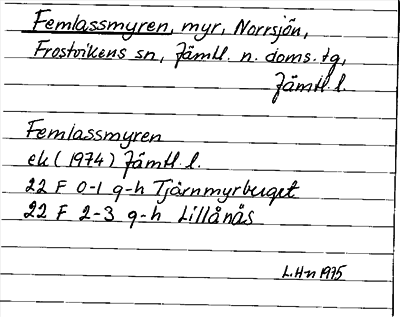 Femlassmyren, myr, Norrsjön,
Frostvikens sn, Jämtl. n. doms. tg,
Jämtl. l.
Femlassmyren
ek (1974) Jämtl. l.
22 F 0-1 g-h Tjärnmyrberget
22 F 2-3 g-h Lillånäs
L.H-n 1975